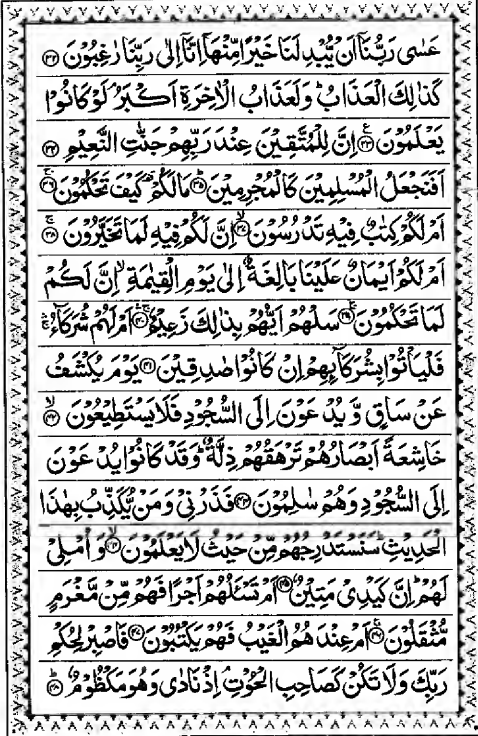 عَسٰى رَبُّنَاۤ اَنۡ يُّبۡدِلَنَا خَيۡرًا مِّنۡهَاۤ اِنَّاۤ اِلٰى رَبِّنَا رٰغِبُوۡنَ ﴿۳۲﴾
كَذٰلِكَ الۡعَذَابُؕ وَلَعَذَابُ الۡاٰخِرَةِ اَكۡبَرُۘ لَوۡ كَانُوۡا
يَعۡلَمُوۡنَ ﴿۳۳﴾ اِنَّ لِلۡمُتَّقِيۡنَ عِنۡدَ رَبِّهِمۡ جَنّٰتِ النَّعِيۡمِ ﴿۳۴﴾
اَفَنَجۡعَلُ الۡمُسۡلِمِيۡنَ كَالۡمُجۡرِمِيۡنَ ﴿۳۵﴾ مَا لَكُمۡ كَيۡفَ تَحۡكُمُوۡنَ ﴿۳۶﴾
اَمۡ لَكُمۡ كِتٰبٌ فِيۡهِ تَدۡرُسُوۡنَ ﴿۳۷﴾ اِنَّ لَكُمۡ فِيۡهِ لَمَا تَخَيَّرُوۡنَ ﴿۳۸﴾
اَمۡ لَكُمۡ اَيۡمَانٌ عَلَيۡنَا بَالِغَةٌ اِلٰى يَوۡمِ الۡقِيٰمَةِۙ اِنَّ لَكُمۡ
لَمَا تَحۡكُمُوۡنَ ﴿۳۹﴾ سَلۡهُمۡ اَيُّهُمۡ بِذٰلِكَ زَعِيۡمٌ ﴿۴۰﴾ اَمۡ لَهُمۡ شُرَكَآءُ
فَلۡيَاۡتُوۡا بِشُرَكَآئِهِمۡ اِنۡ كَانُوۡا صٰدِقِيۡنَ ﴿۴۱﴾ يَوۡمَ يُكۡشَفُ
عَنۡ سَاقٍ وَّيُدۡعَوۡنَ اِلَى السُّجُوۡدِ فَلَا يَسۡتَطِيۡعُوۡنَ ﴿۴۲﴾
خَاشِعَةً اَبۡصَارُهُمۡ تَرۡهَقُهُمۡ ذِلَّةٌؕ وَقَدۡ كَانُوۡا يُدۡعَوۡنَ
اِلَى السُّجُوۡدِ وَهُمۡ سٰلِمُوۡنَ ﴿۴۳﴾ فَذَرۡنِىۡ وَمَنۡ يُّكَذِّبُ بِهٰذَا
الۡحَدِيۡثِؕ سَنَسۡتَدۡرِجُهُمۡ مِّنۡ حَيۡثُ لَا يَعۡلَمُوۡنَ ﴿۴۴﴾ وَاُمۡلِىۡ
لَهُمۡؕ اِنَّ كَيۡدِىۡ مَتِيۡنٌ ﴿۴۵﴾ اَمۡ تَسۡـَٔلُهُمۡ اَجۡرًا فَهُمۡ مِّنۡ مَّغۡرَمٍ
مُّثۡقَلُوۡنَ ﴿۴۶﴾ اَمۡ عِنۡدَهُمُ الۡغَيۡبُ فَهُمۡ يَكۡتُبُوۡنَ ﴿۴۷﴾ فَاصۡبِرۡ لِحُكۡمِ
رَبِّكَ وَلَا تَكُنۡ كَصَاحِبِ الۡحُوۡتِۘ اِذۡ نَادٰى وَهُوَ مَكۡظُوۡمٌؕ ﴿۴۸﴾